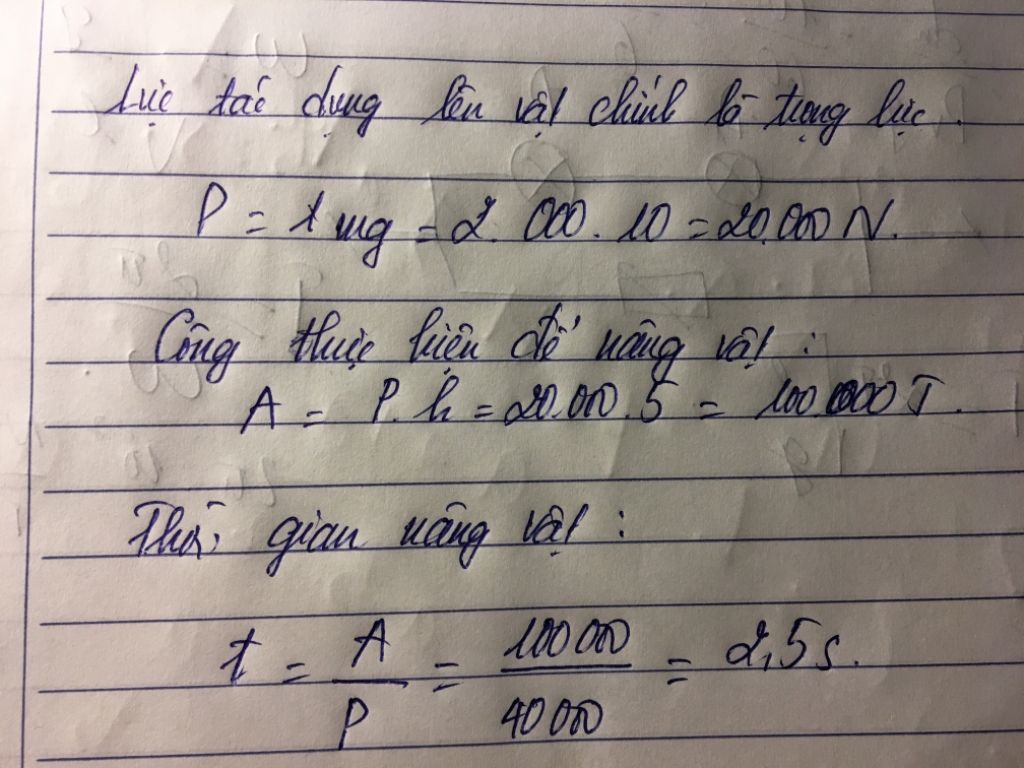 Lực tác dụng lên vật chính là trọng lực.
P = 1 mg = 2.000.10 = 20.000 N.
Công thực hiện để nâng vật:
A = P.h = 20.000.5 = 100 000 J.
Thời gian nâng vật:
t = A / P = 100 000 / 40 000 = 2,5s.